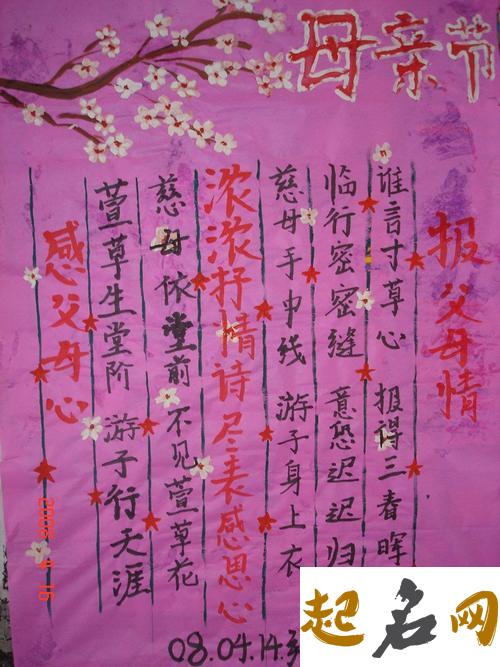 母亲节
报父母情
谁言寸草心 报得三春晖
临行密密缝 意恐迟迟归
慈母手巾线 游子身上衣
浓浓抒情诗 尽表感恩心
慈母依堂前 不见萱草花
萱草生堂阶 游子行天涯
感父母心
08.04.14.
起名网